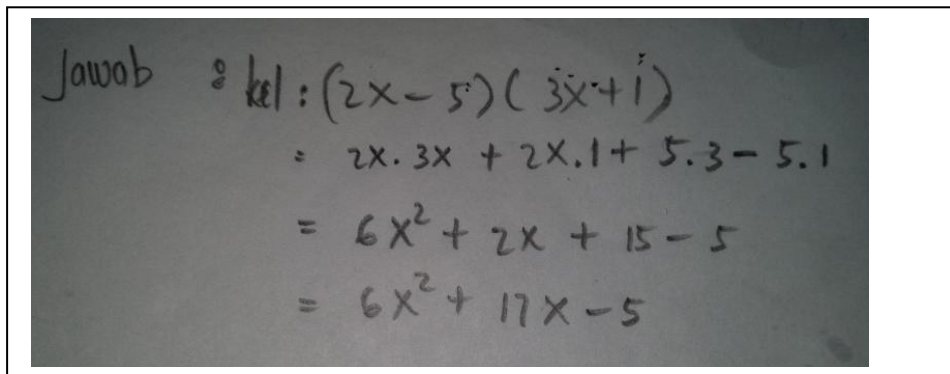 Jawab : kel : (2x - 5)(3x + 1)
= 2x.3x + 2x.1 + 5.3 - 5.1
= 6x² + 2x + 15 - 5
= 6x² + 17x - 5